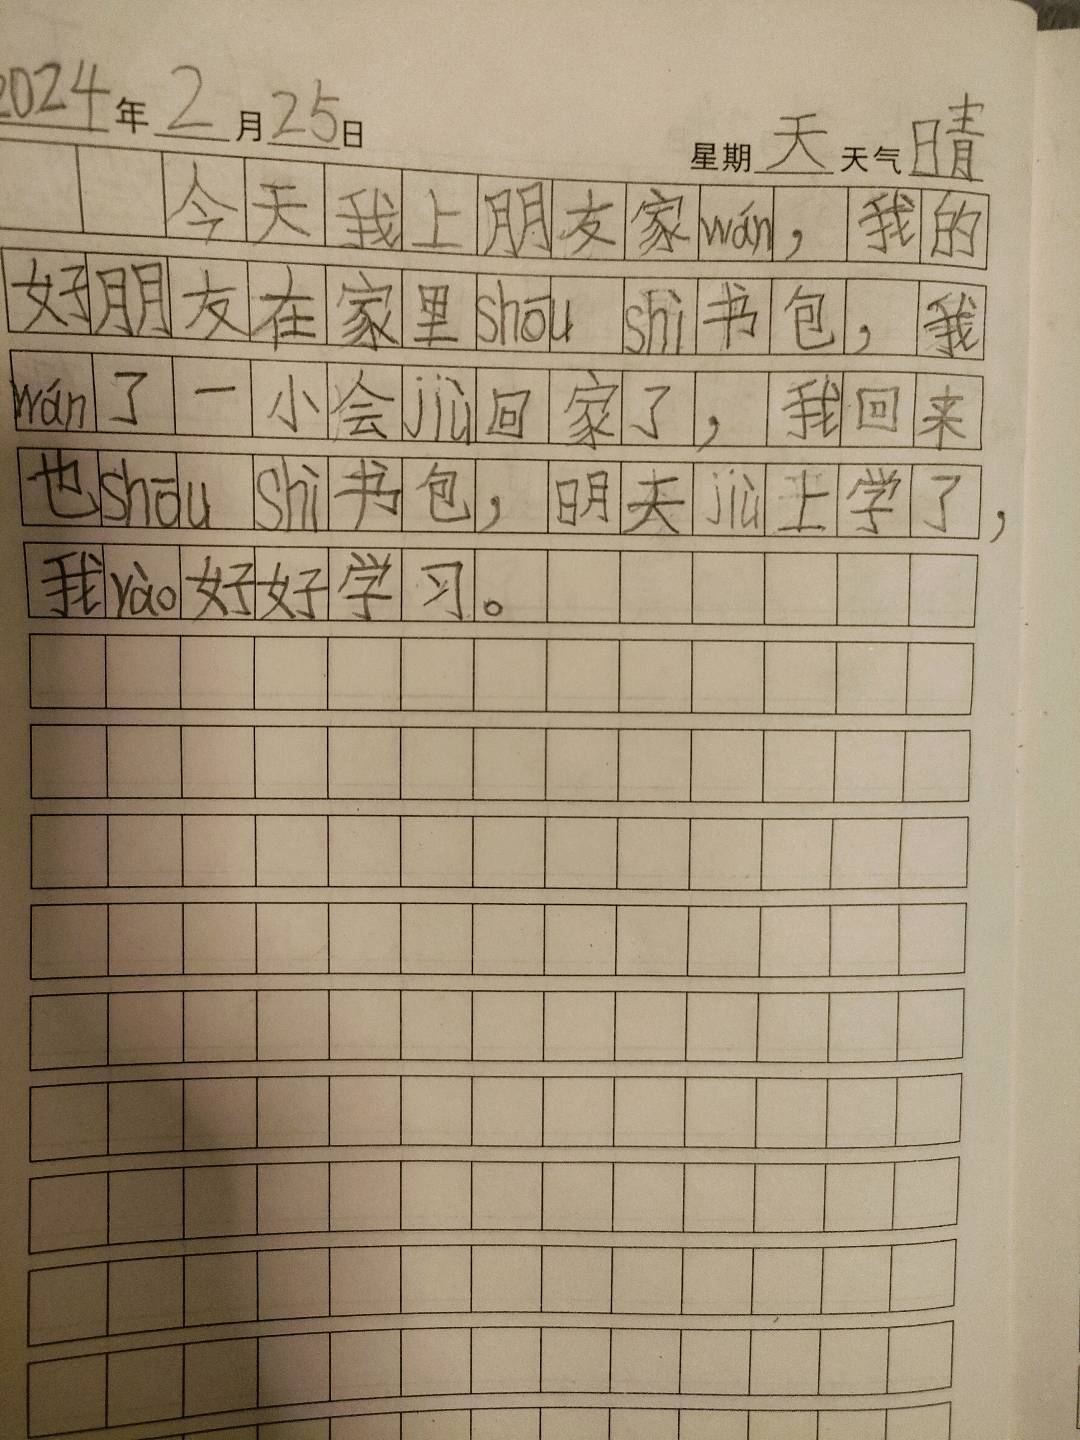 2024年2月25日 星期天 天气晴
今天我上朋友家wán，我的
好朋友在家里shōu shi书包，我
wán了一小会jiù回家了，我回来
也shōu shi书包，明天jiù上学了，
我yào好好学习。